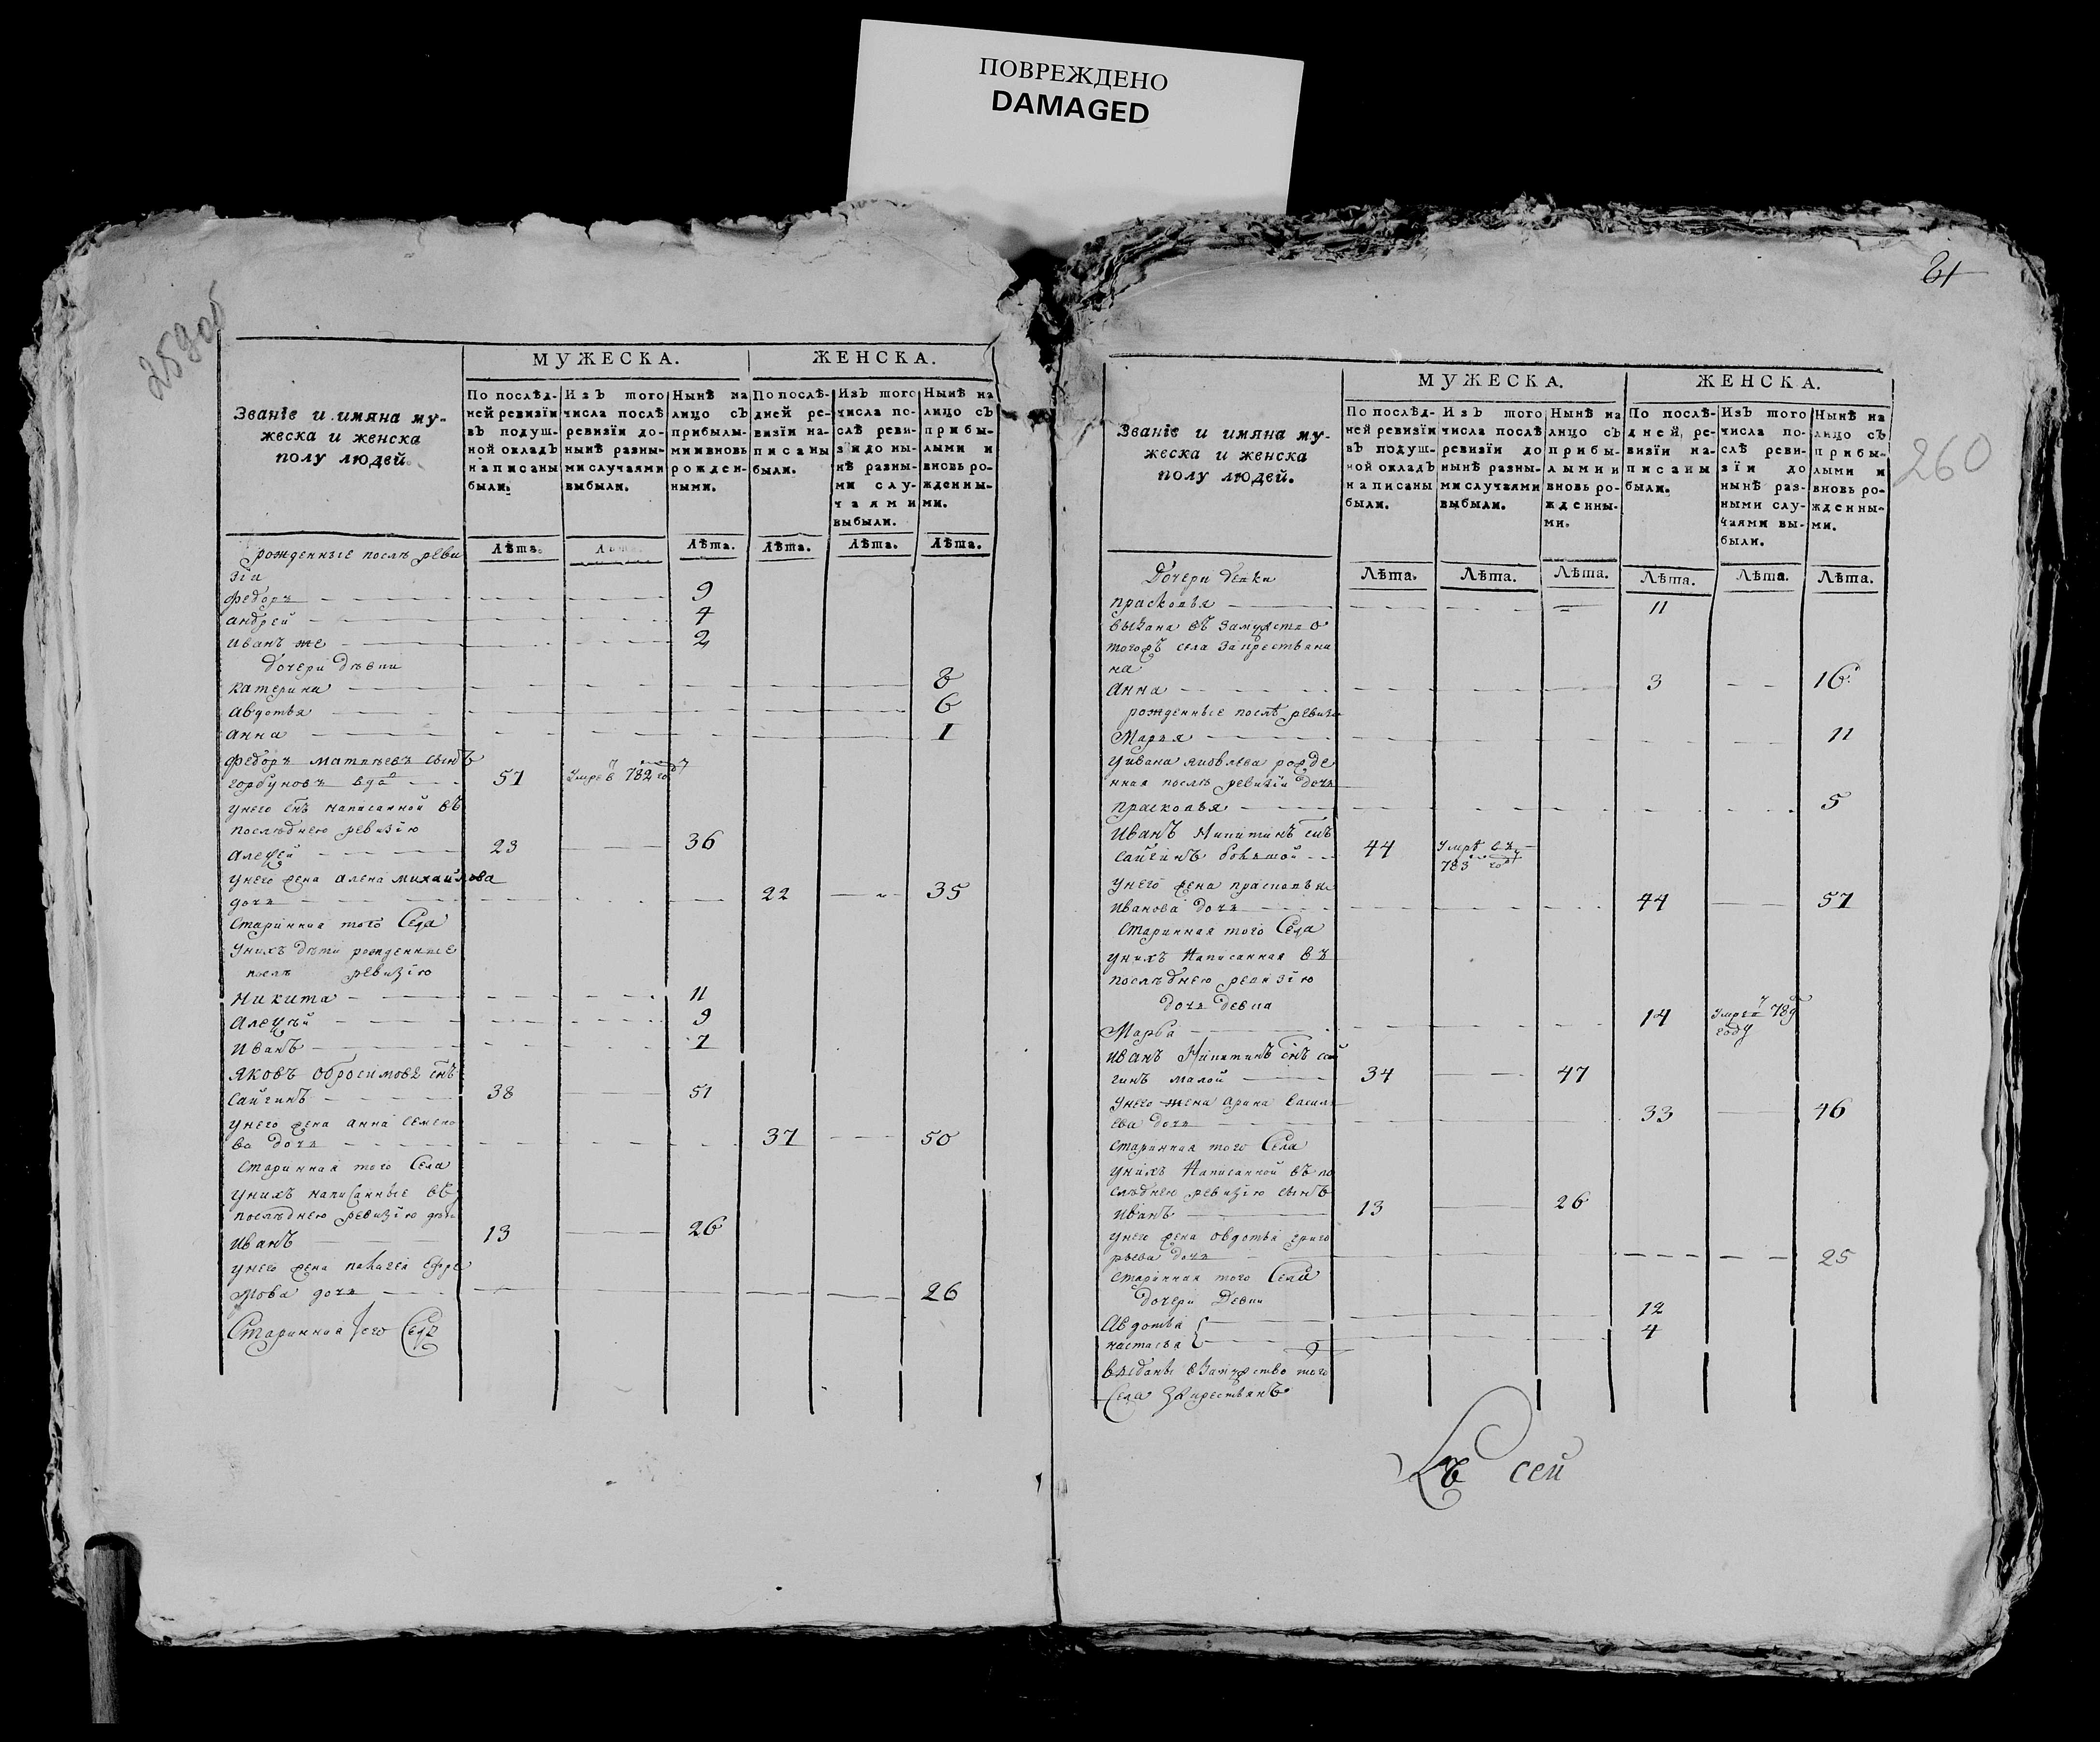 ПОВРЕЖДЕНО
DAMAGED
259 об
МУЖЕСКА. ЖЕНСКА.
Званіе и имяна му-
жеска и женска
полу людей.
По послѣд-
ней ревизіи
въ подуш-
ной окладъ
написаны
были.
Изъ того
числа послѣ
ревизіи до-
нынѣ разны-
ми случаями
выбыли.
Нынѣ на
лицо съ
прибылы-
ми и вновь
рожден-
ными.
По послѣ-
дней ре-
визіи на-
писаны
были.
Изъ того
числа по-
слѣ реви-
зіи до ны-
нѣ разны-
ми слу-
чаями
выбыли.
Нынѣ на
лицо съ
прибы-
лыми и
вновь ро-
жденны-
ми.
Лѣта. Лѣта. Лѣта. Лѣта. Лѣта. Лѣта.
рожденные послѣ реви
зіи
федоръ 9
андрей 4
иванъ же 2
дочери дѣвки
катерина 8
авдотья 6
анна 1
федоръ матвѣевъ сынъ
горбуновъ вдо 57 умре в 782 году
унего снъ написанной въ
последнею ревизію
алеѯей 23 36
унего жена алена михайлова
дочь 22 35
старинная того села
унихъ дѣти рожденные
послѣ ревизію
никита 11
алеѯѣй 9
иванъ 7
яковъ обросимовъ снъ
сайгинъ 38 51
унего жена анна семено
ва дочь 37 50
старинная того села
унихъ написанные въ
последнею ревизію дѣти
иванъ 13 26
унего жена пелагея ефре
мова дочь 26
Старинная того Села
61
260
МУЖЕСКА. ЖЕНСКА.
Званіе и имяна му-
жеска и женска
полу людей.
По послѣд-
ней ревизіи
въ подуш-
ной окладъ
написаны
были.
Изъ того
числа послѣ
ревизіи до
нынѣ разны-
ми случаями
выбыли.
Нынѣ на
лицо съ
прибы-
лыми и
вновь ро-
жденны-
ми.
По послѣ-
дней, ре-
визіи на-
писаны
были.
Изъ того
числа по-
слѣ реви-
зіи до
нынѣ раз-
ными слу-
чаями вы-
были.
Нынѣ на
лицо съ
прибы-
лыми и
вновь ро-
жденны-
ми.
Лѣта. Лѣта. Лѣта. Лѣта. Лѣта. Лѣта.
Дочери девки
прасковья 11
выдана въ замужство
тогожъ села закрестьяни
на
анна 3 16
рожденные послѣ ревизи
Марья 11
уивана яковлева рожде
нная послѣ ревизіи дочь
прасковья 5
иванъ Никитинъ снъ
сайгинъ большой 44 умре въ
783 году
унего жена прасковья
иванова дочь 44 57
старинная того Села
унихъ написанная въ
последнею ревизію
дочь девка
Марфа 14 умрѣ 789
году
иванъ Никитинъ снъ сай
гинъ малой 34 47
унего жена арина васил
ева дочь 33 46
старинная того Села
унихъ написанной въ по
следнею ревизію сынъ
иванъ 13 26
унего жена овдотья григо
рьева дочь 25
старинная того Села
дочери Девки
авдотья 12
настасья 4
выданы взамужство того
Села закрестьянъ
Къ сей